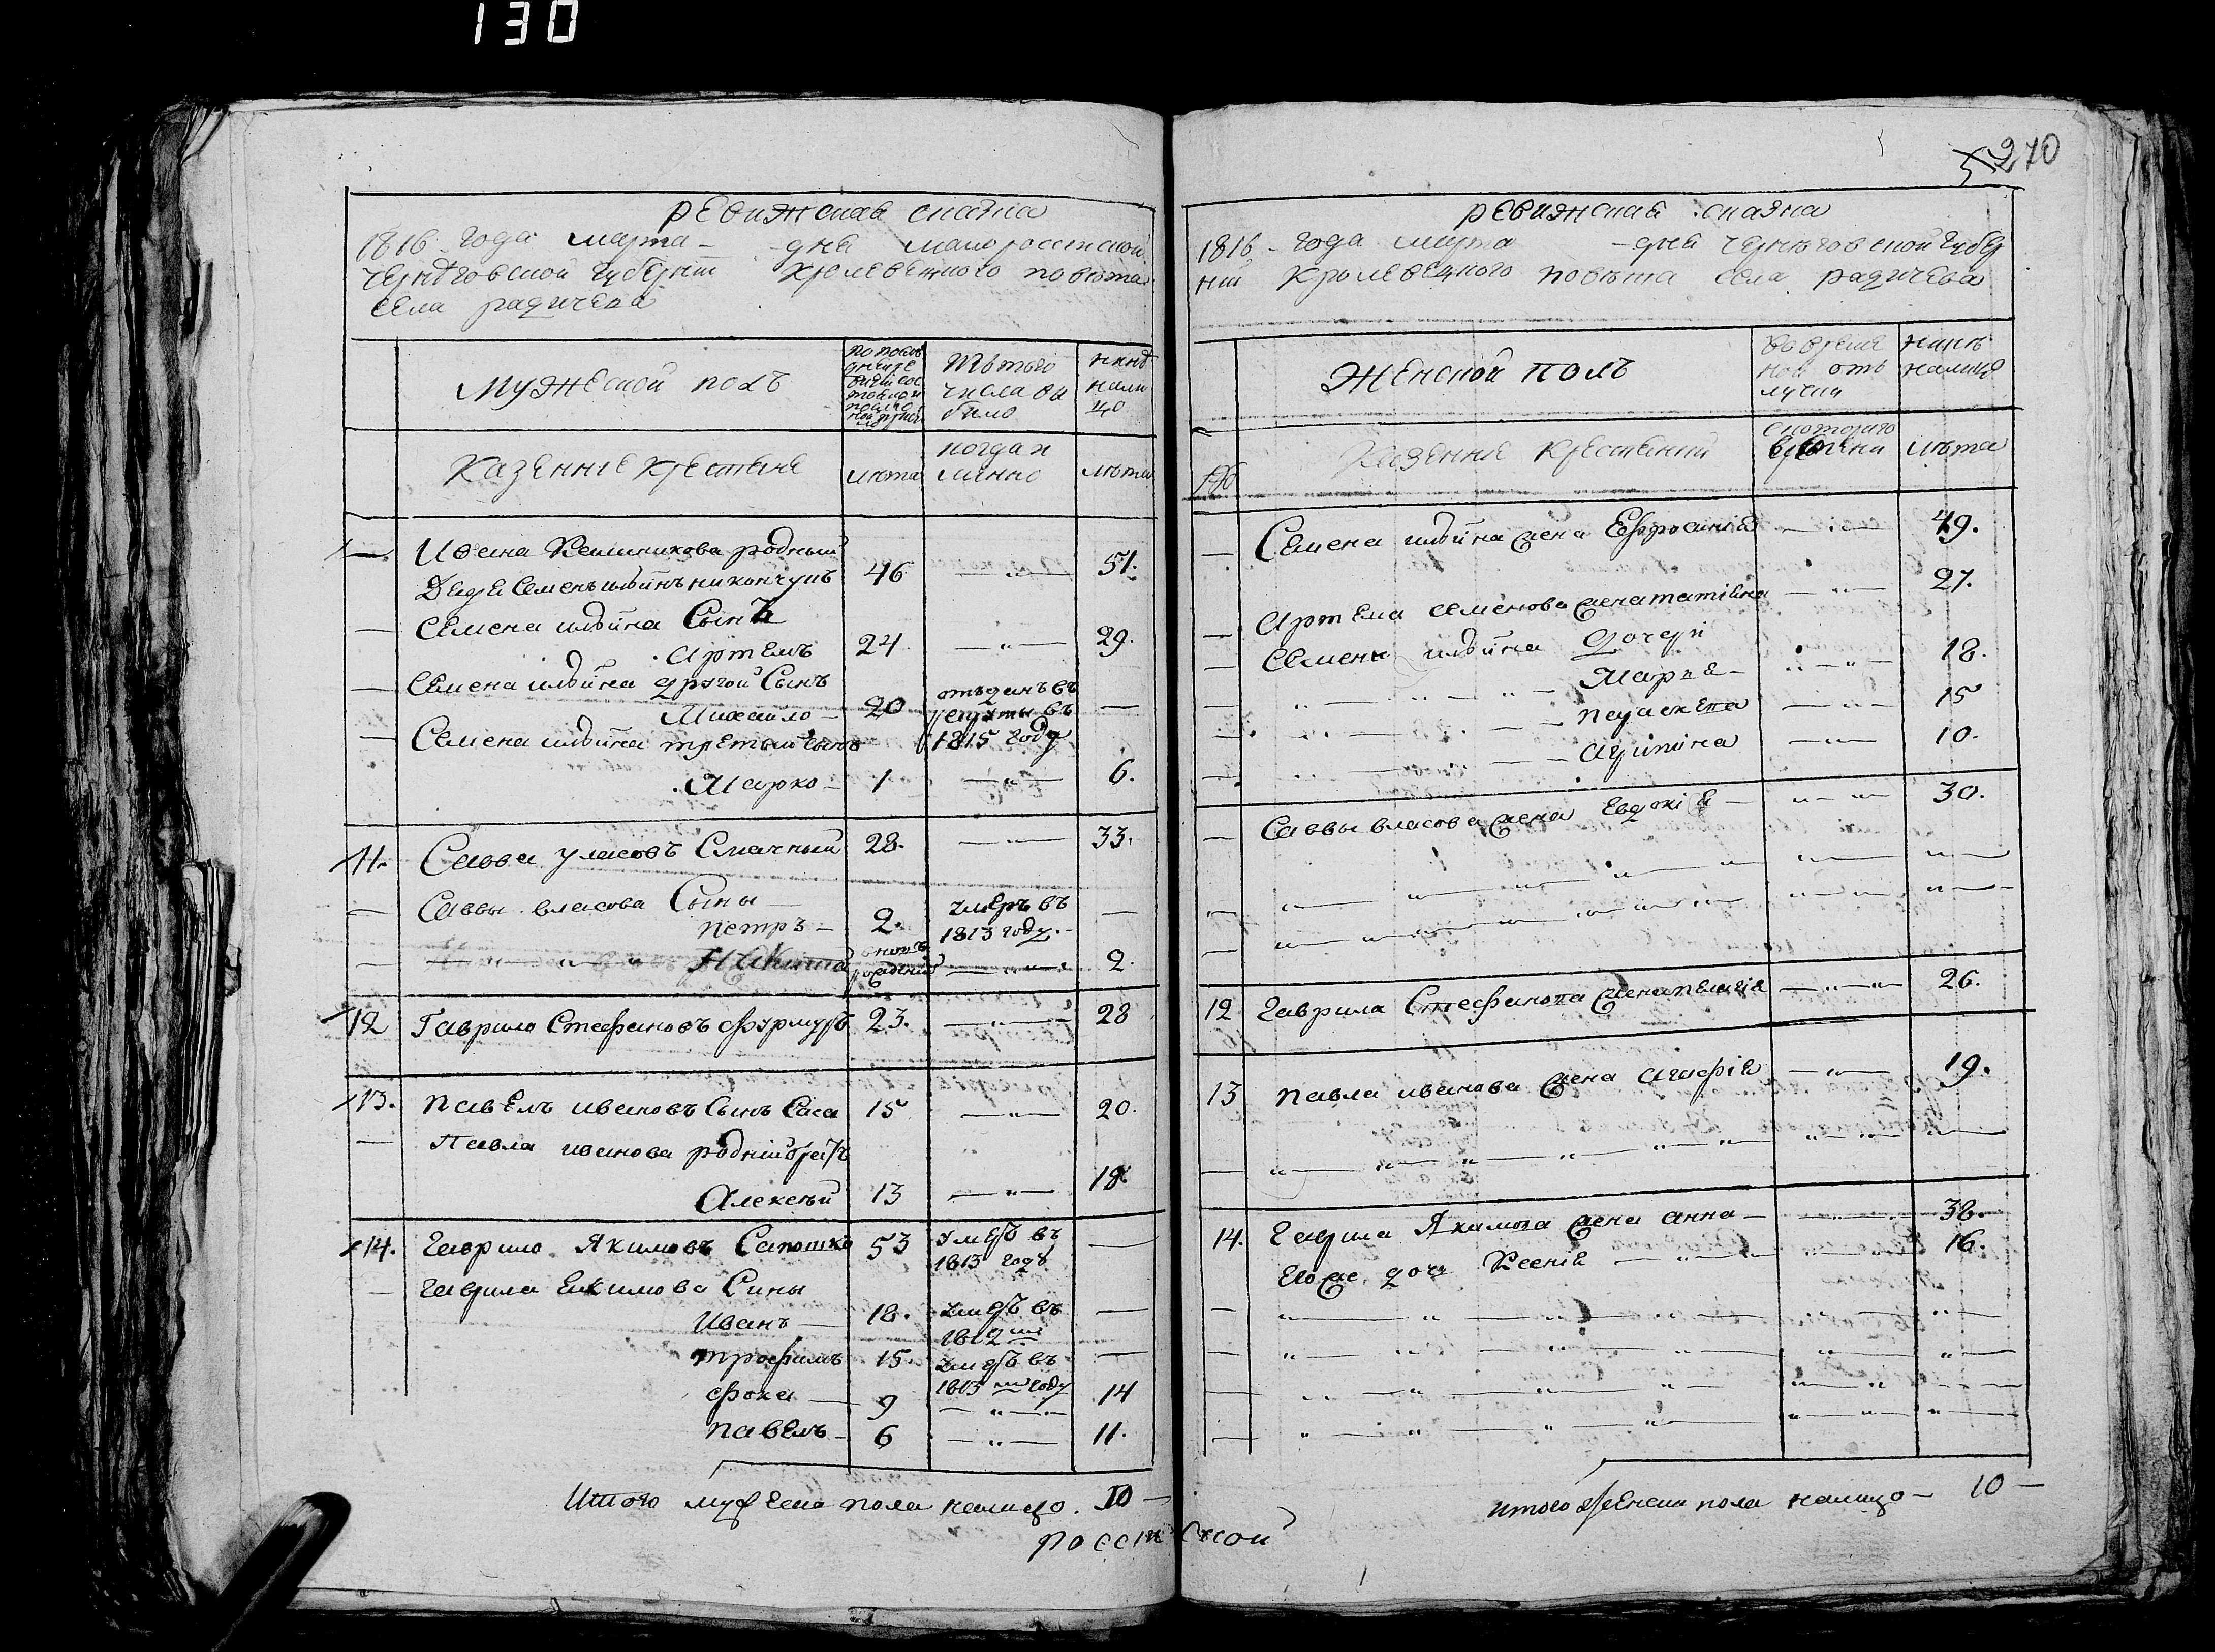 130
270
ревижская сказка
1816 года марта — дня малороссийской
черниговской губернии кролевецкого повѣта
села радичева
мужеской полъ
по послѣдней
ревизіи состояло и
после
Изъ того
числа вы
было
нынѣ
нали
цо
Казенніе крестьяне
лѣта
когда и
менно
лѣта
Ивана родный
Дядя Семенъ ильинъ никончукъ 46 — „ — 51.
Семена ильина Сынъ
Артемъ 24 — „ — 29.
Семена ильина другой Сынъ
Михайло — 20 отъданъ въ рекруты въ 1815 году —
Семена ильина третый сынъ
Марко — 1 — „ — 6.
11. Савва уласовъ Смачный 28. — „ — 33.
Саввы власова Сыны —
петръ — 2. умеръ въ 1813 году. —
Никита рожденъ — „ — 2.
12 Гаврило Стефановъ фурмуръ 23. — „ — 28
13. павелъ ивановъ Сынъ Саса 15 — „ — 20.
Павла иванова родній братъ
Алексѣй 13 — „ — 18
14. Гаврило Якимовъ Сапошко 53 умеръ въ 1813 годъ —
Гаврила Екимова Сины
Иванъ — 18. умеръ въ 1812 —
трофимъ 15. умеръ въ 1813 году —
фока — 9 — „ — 14
павелъ — 6 — „ — 11.
Итого мужеска пола налицо. 10 —
ревижская сказка
1816 года марта — дня черниговской губер
ніи кролевецкого повѣта села радичева
Женской полъ
во время
ной отъ
лучки
нинѣ
налицо
Казенніе крестьянки
с которого
времени
лѣта
Семена ильина жена Ефросинія — „ — 49.
Артема семенова жена татіяна — „ — 27.
Семена ильина дочери
Марья — „ — 18.
параскева — „ — 15
агрипина — „ — 10.
Саввы власова жена Евдокія — „ — 30.
12 гаврила Стефанова жена пелагія — „ — 26.
13 павла иванова жена агафія — „ — 19.
14. гаврила Якимова жена анна — 38.
Его же дочь Ксенія — 16.
итого женска пола налицо — 10 —
россійской